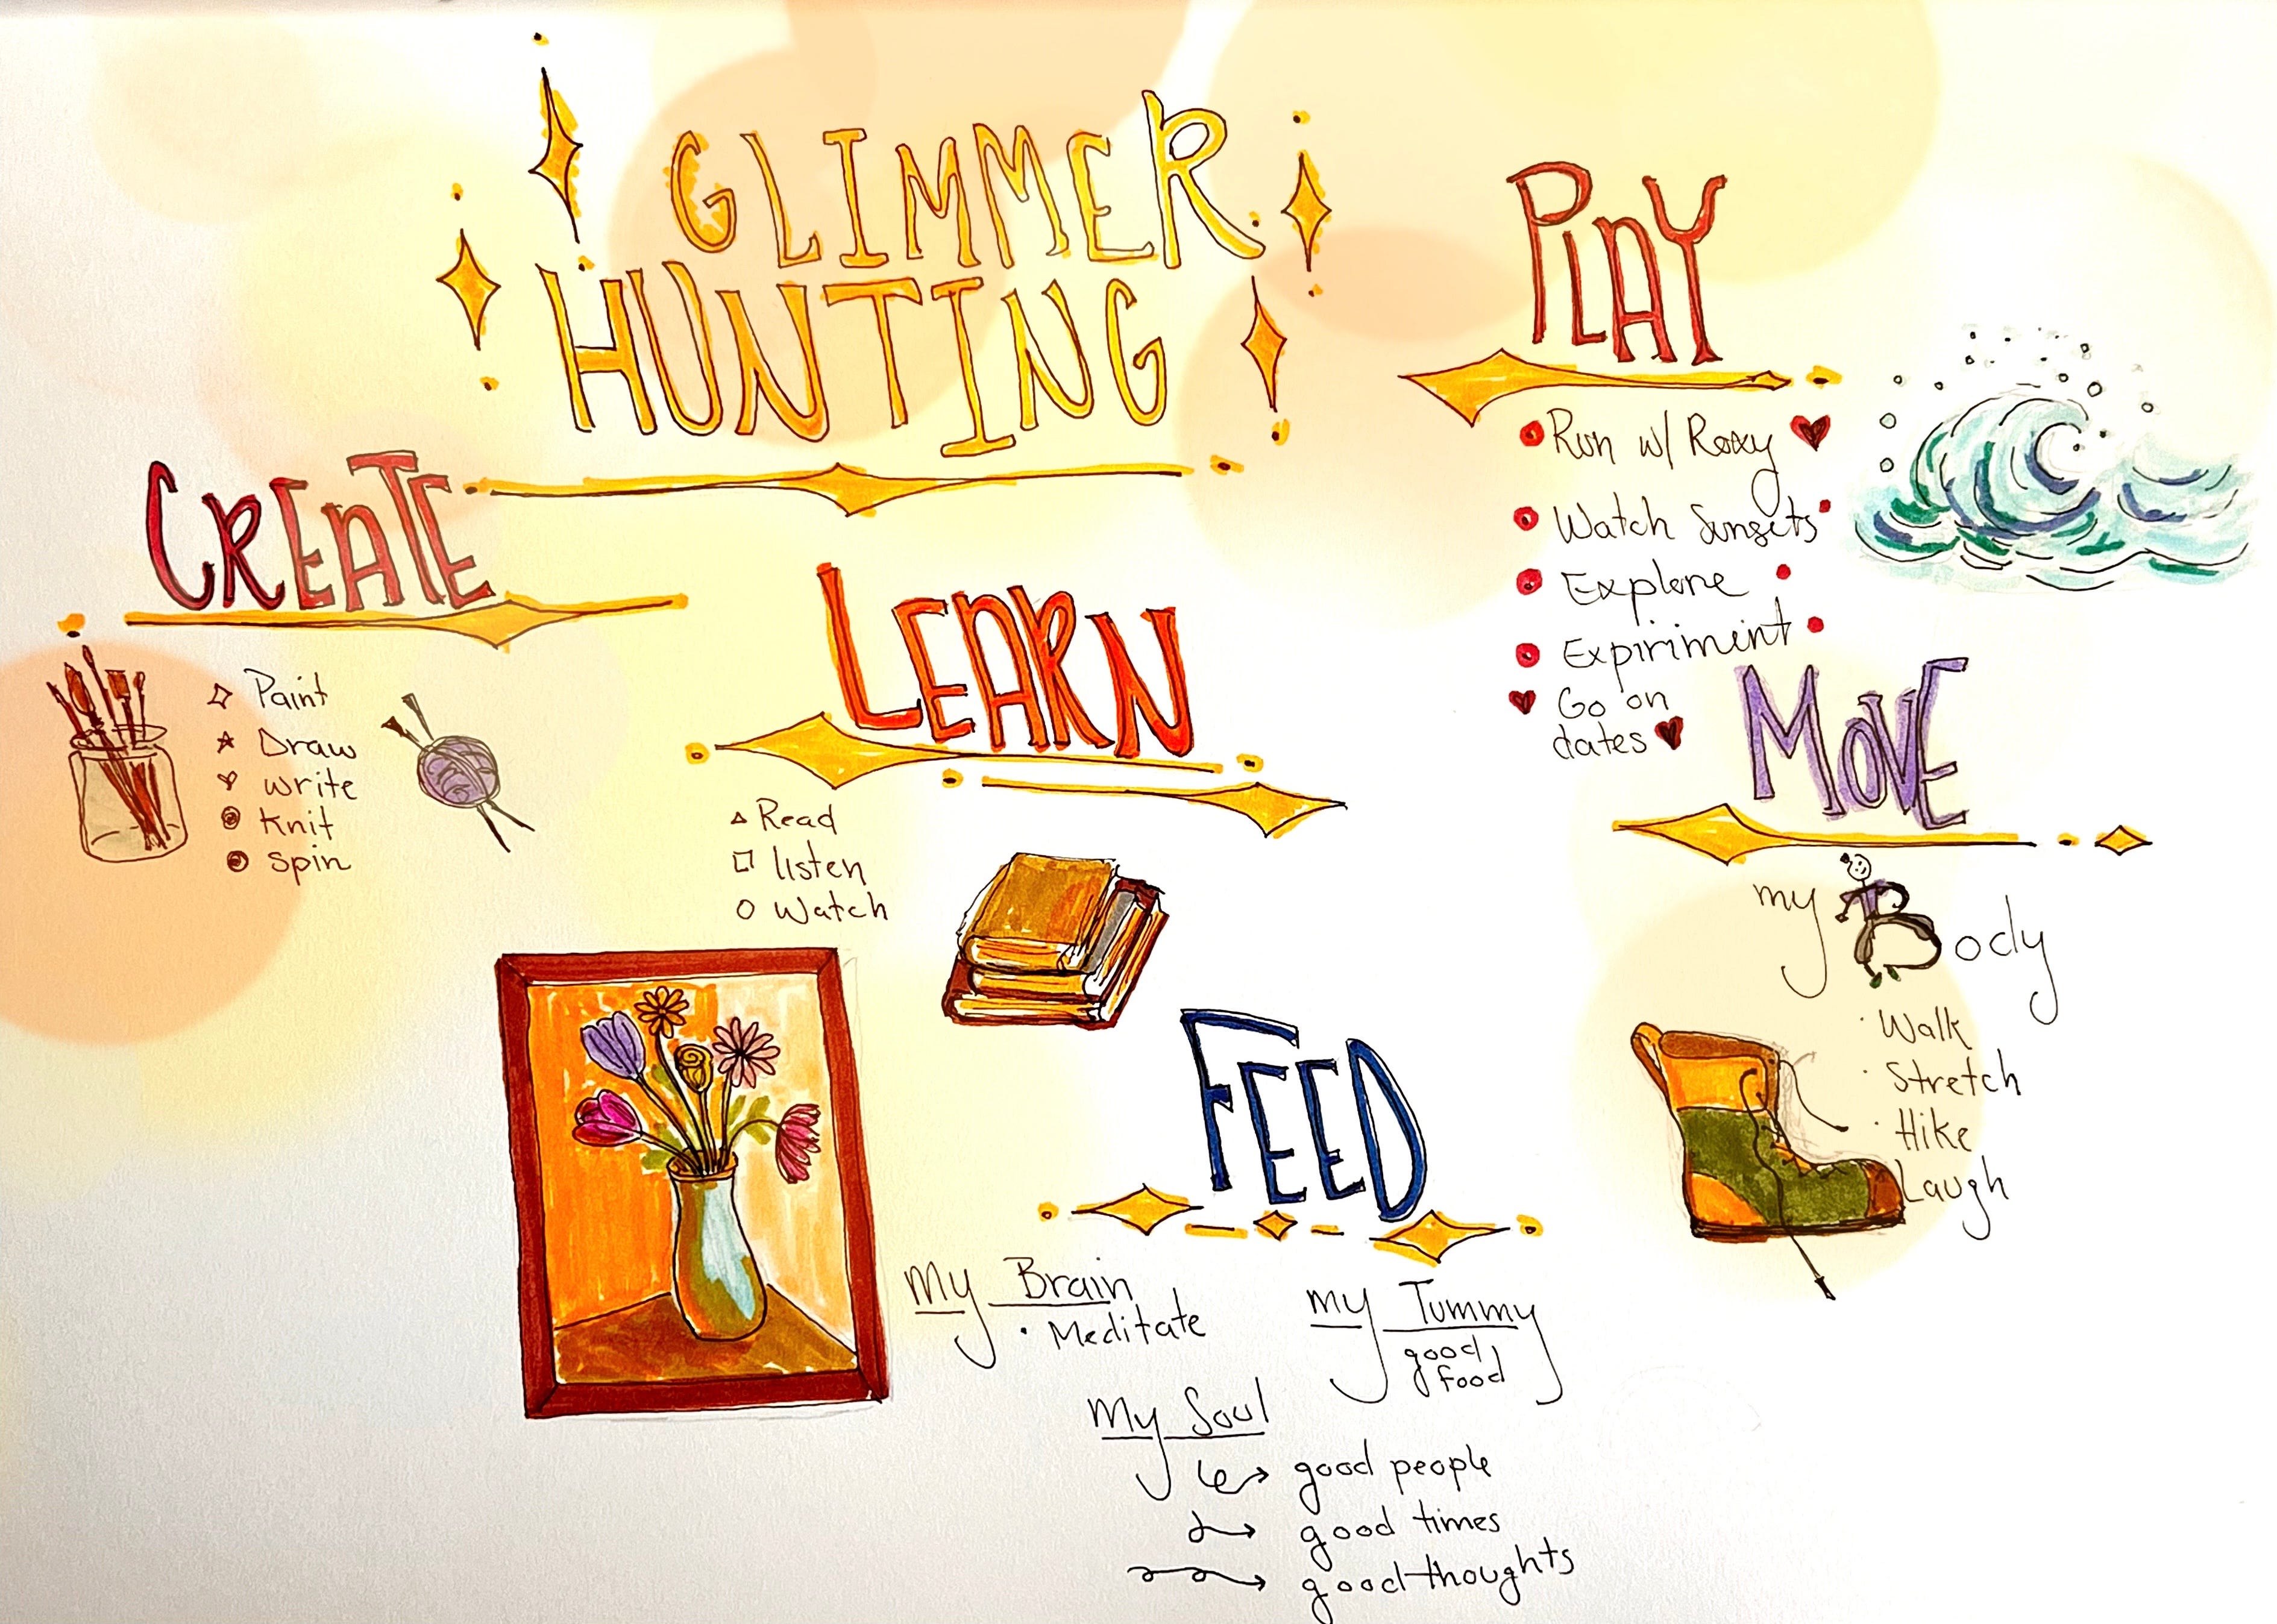 GLIMMER
HUNTING
CREATE
Paint
Draw
write
knit
spin
LEARN
Read
listen
Watch
PLAY
Run w/ Roxy
Watch Sunsets
Explore
Expiriment
Go on
dates
MOVE
my Body
Walk
Stretch
Hike
Laugh
FEED
My Brain
Meditate
my Tummy
good
food
My Soul
good people
good times
good thoughts